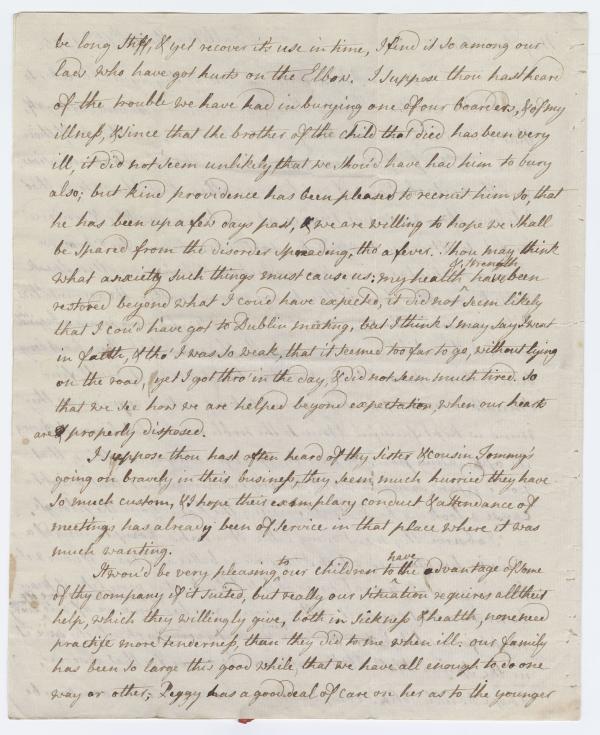 be long stiff, & yet recover it's use in time, I find it so among our
lads who have got hurts on the Elbow. I suppose thou hast heard
of the trouble we have had in burying one of our boarders, & of my
illness, & since that the brother of the child that died has been very
ill, it did not seem unlikely that we shou'd have had him to bury
also; but kind providence has been pleased to recruit him so, that
he has been up a few days past, & we are willing to hope we shall
be spared from the disorder spreading, tho' a fever. Thou may think
& strength
what anxiety such things must cause us: my health have been
restored beyond what I cou'd have expected, it did not seem likely
that I cou'd have got to Dublin meeting, but I think I may say I went
in faith, & tho' I was so weak, that it seemed too far to go, without lying
on the road, yet I got thro' in the day, & did not seem much tired. so
that we see how we are helped beyond expectation when our hearts
are properly disposed.
I suppose thou hast often heard of thy Sister & cousin Tommy's
going on bravely in their business, they seem much hurried they have
so much custom, & I hope their exemplary conduct & attendance of
meetings has already been of service in that place where it was
much wanting.
to have
It wou'd be very pleasing our children to the advantage of some
of thy company if it suited, but really our situation requires all their
help, which they willingly give, both in sickness & health, none need
practise more tenderness, than they did to me when ill: our family
has been so large this good while, that we have all enough to do one
way or other; Peggy has a good deal of care on her as to the younger